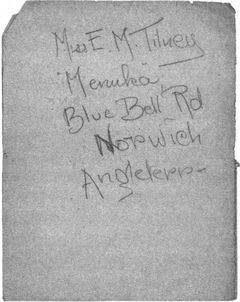 Miss E. M. Tilney
"Menuka"
Blue Bell Rd
Norwich
Angleterr-